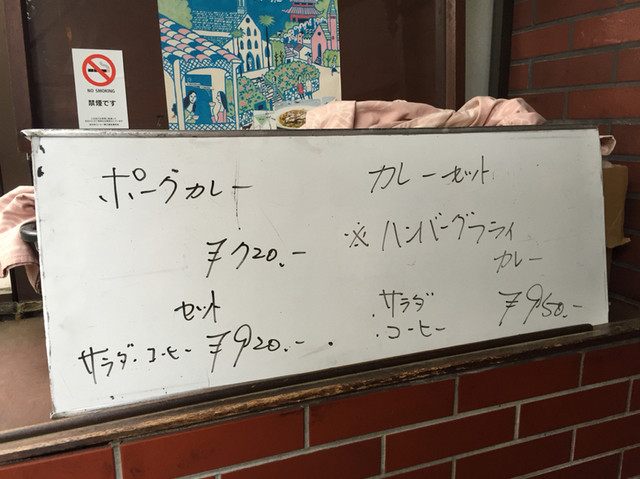 NO SMOKING
禁煙です
ポークカレー
¥720.-
セット
サラダ・コーヒー ¥920.-
カレーセット
※ハンバーグフライ
カレー
・サラダ
・コーヒー
¥950.-